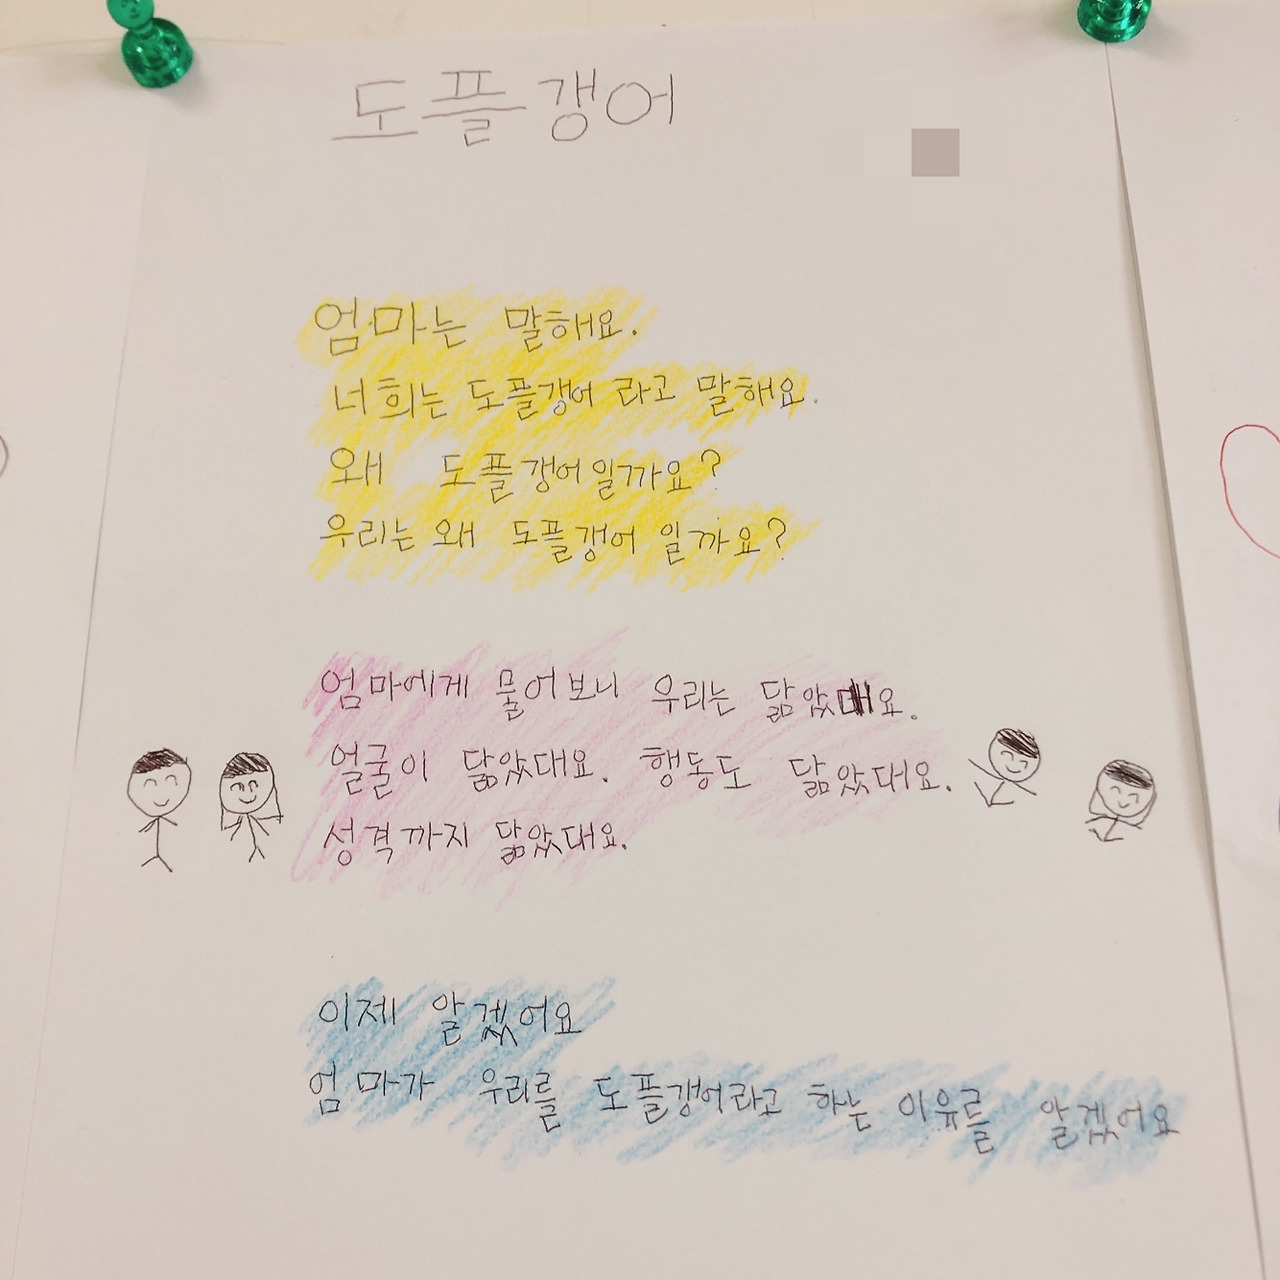 도플갱어
엄마는 말해요.
너희는 도플갱어 라고 말해요.
왜 도플갱어일까요?
우리는 왜 도플갱어 일까요?
엄마에게 물어보니 우리는 닮았대요.
얼굴이 닮았대요. 행동도 닮았대요.
성격까지 닮았대요.
이제 알겠어요
엄마가 우리를 도플갱어라고 하는 이유를 알겠어요